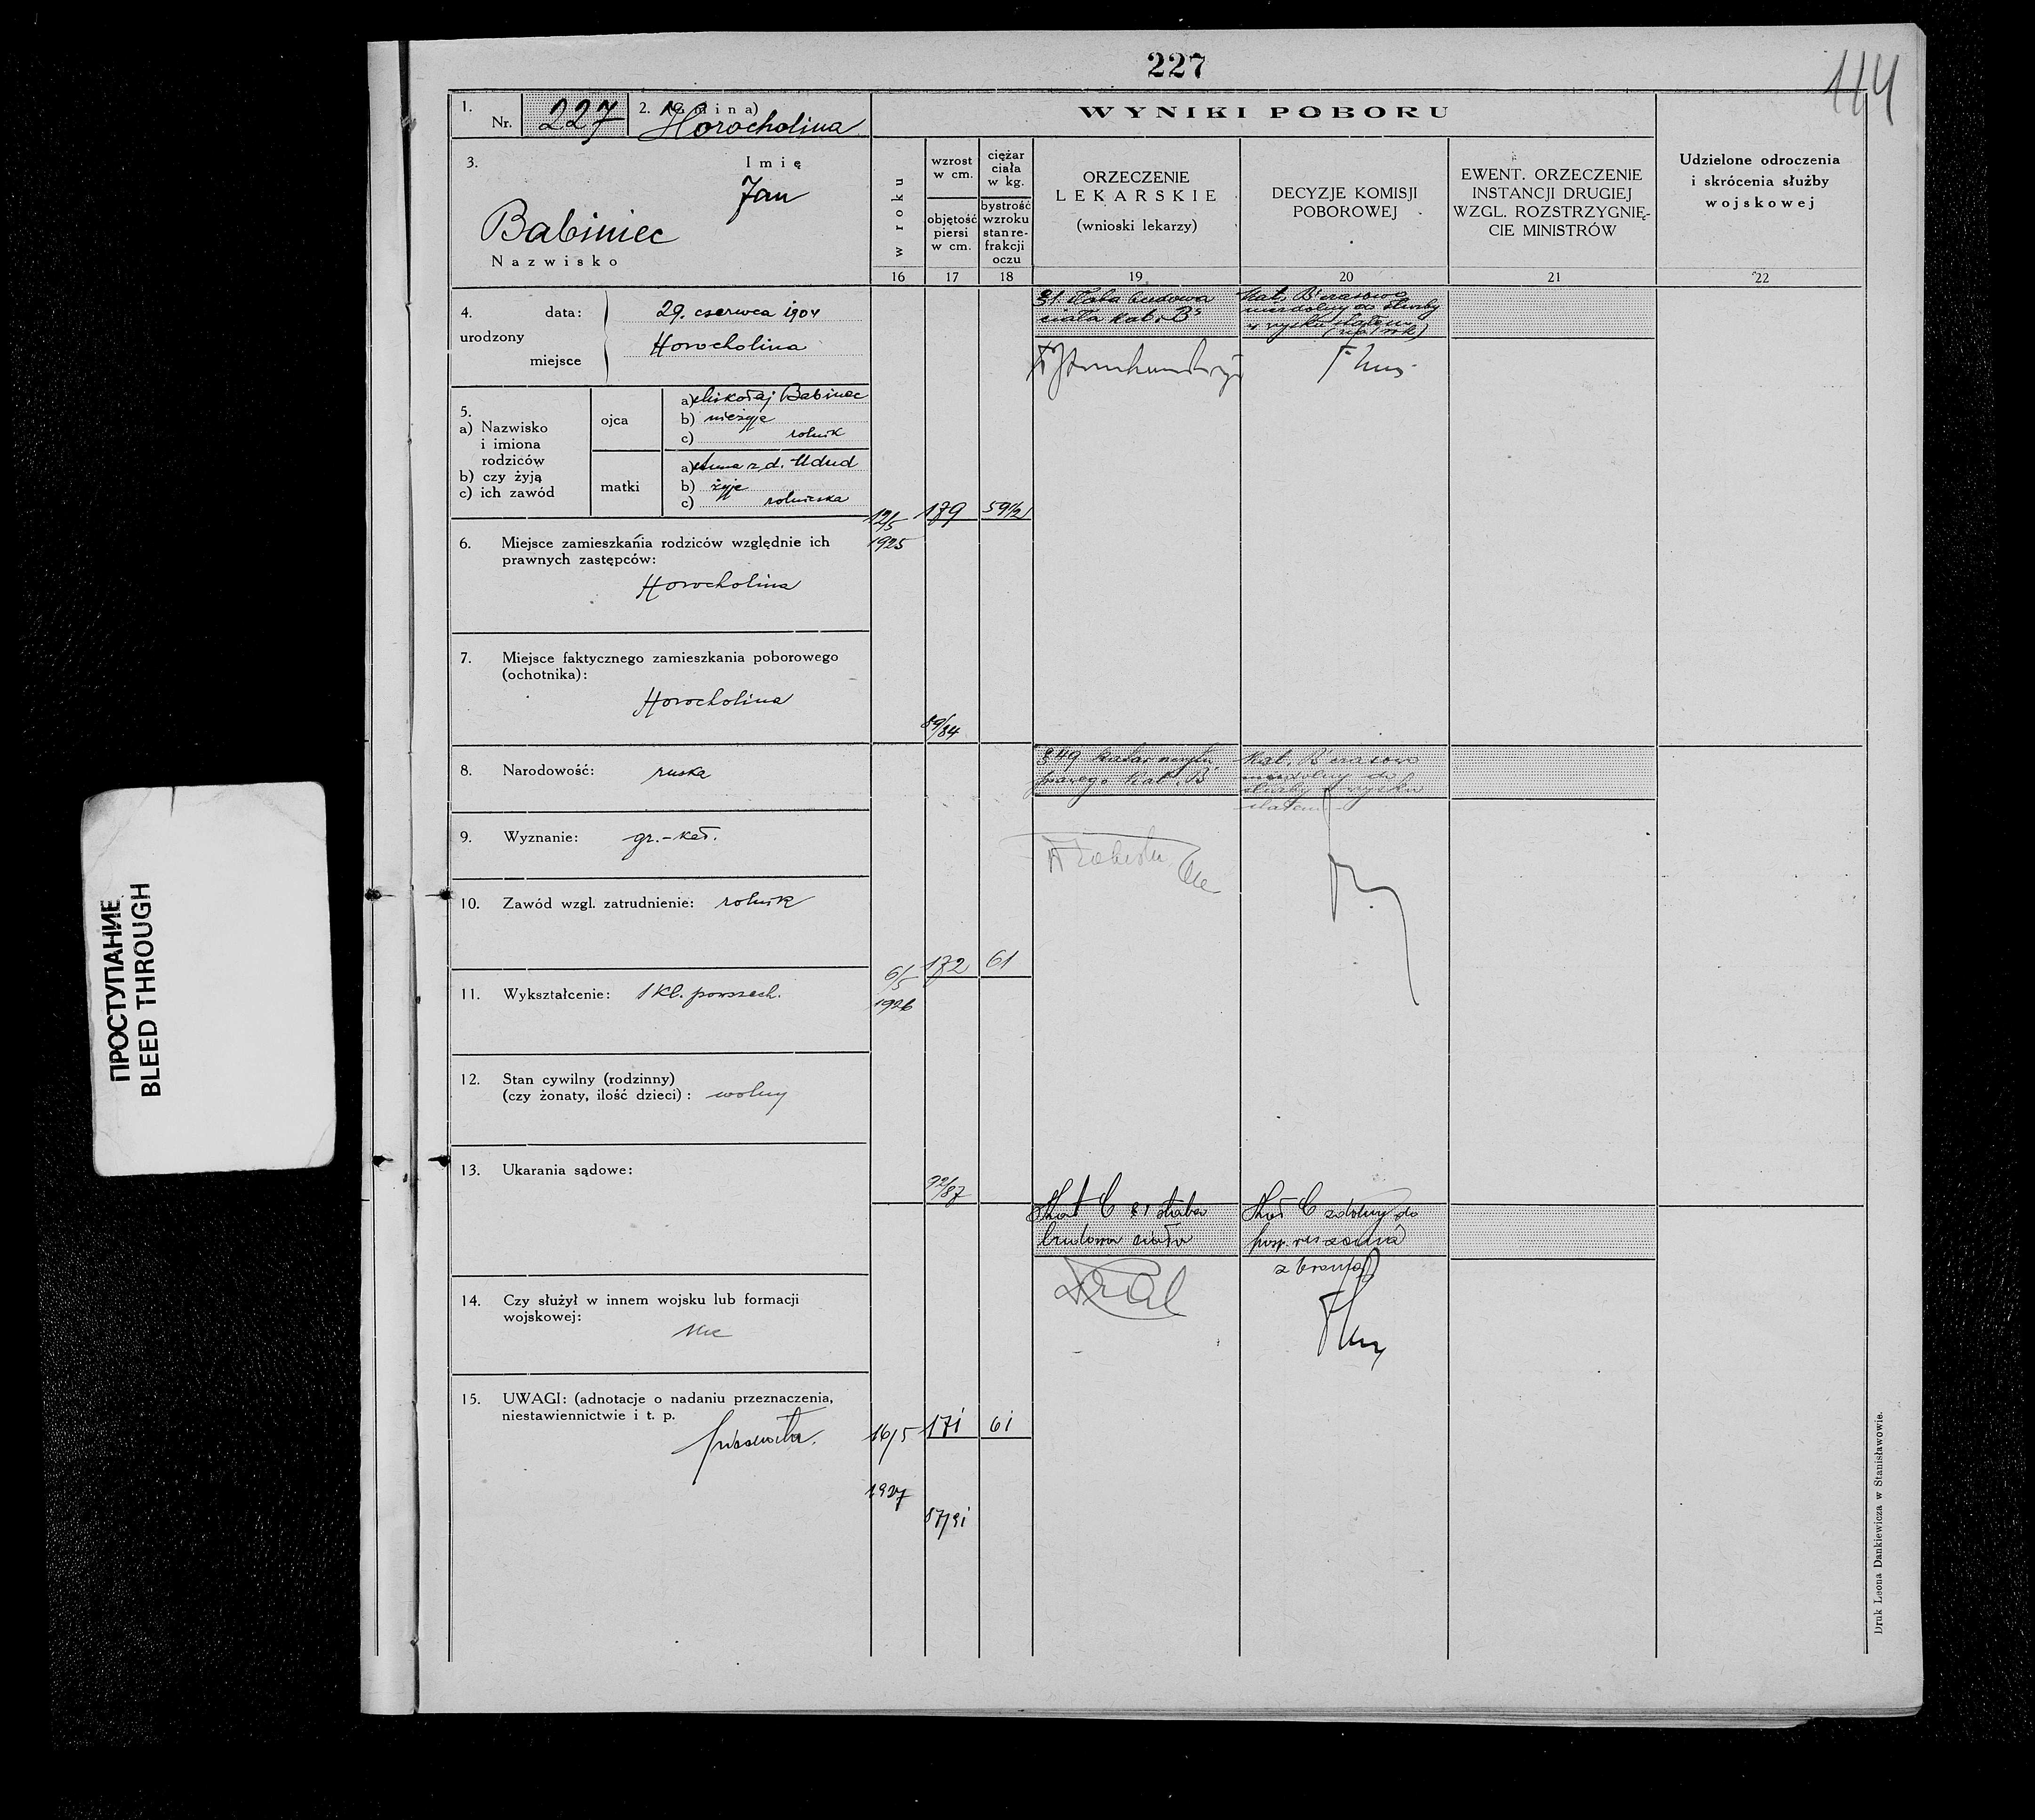 227
114
1. Nr. 227
2. (Gmina) Horocholina
WYNIKI POBORU
3. Imię
Jan
Babiniec
Nazwisko
w roku
wzrost w cm.
objętość piersi w cm.
ciężar ciała w kg.
bystrość wzroku stan refrakcji oczu
ORZECZENIE
LEKARSKIE
(wnioski lekarzy)
DECYZJE KOMISJI
POBOROWEJ
EWENT. ORZECZENIE
INSTANCJI DRUGIEJ
WZGL. ROZSTRZYGNIĘ-
CIE MINISTRÓW
Udzielone odroczenia
i skrócenia służby
wojskowej
16 17 18 19 20 21 22
4. urodzony
data: 29. czerwca 1904
miejsce Horocholina
5.
a) Nazwisko
i imiona
rodziców
b) czy żyją
c) ich zawód
ojca
a) Mikołaj Babiniec
b) nieżyje
c) rolnik
matki
a) Anna z d. Udud
b) żyje
c) rolniczka
6. Miejsce zamieszkania rodziców względnie ich
prawnych zastępców:
Horocholina
7. Miejsce faktycznego zamieszkania poborowego
(ochotnika):
Horocholina
8. Narodowość: ruska
9. Wyznanie: gr.-kat.
10. Zawód wzgl. zatrudnienie: rolnik
11. Wykształcenie: 1 kl. powszech.
12. Stan cywilny (rodzinny)
(czy żonaty, ilość dzieci): wolny
13. Ukarania sądowe:
14. Czy służył w innem wojsku lub formacji
wojskowej:
nie
15. UWAGI: (adnotacje o nadaniu przeznaczenia,
niestawiennictwie i t. p.
12/5 1925
179
59 1/2
89/84
ciała kat. B
Kat. B czasowo
niezdolny do służby
6/5 1926
172
61
92/87
Kat. B czasowo
niezdolny do
służby w wojsku
16/5 1927
171
61
87/91
Kat C słaba
budowa ciała
Kat C zdolny do
posp. ruszenia
z bronią
Druk Leona Dankiewicza w Stanisławowie.
ПРОСТУПАНИЕ
BLEED THROUGH